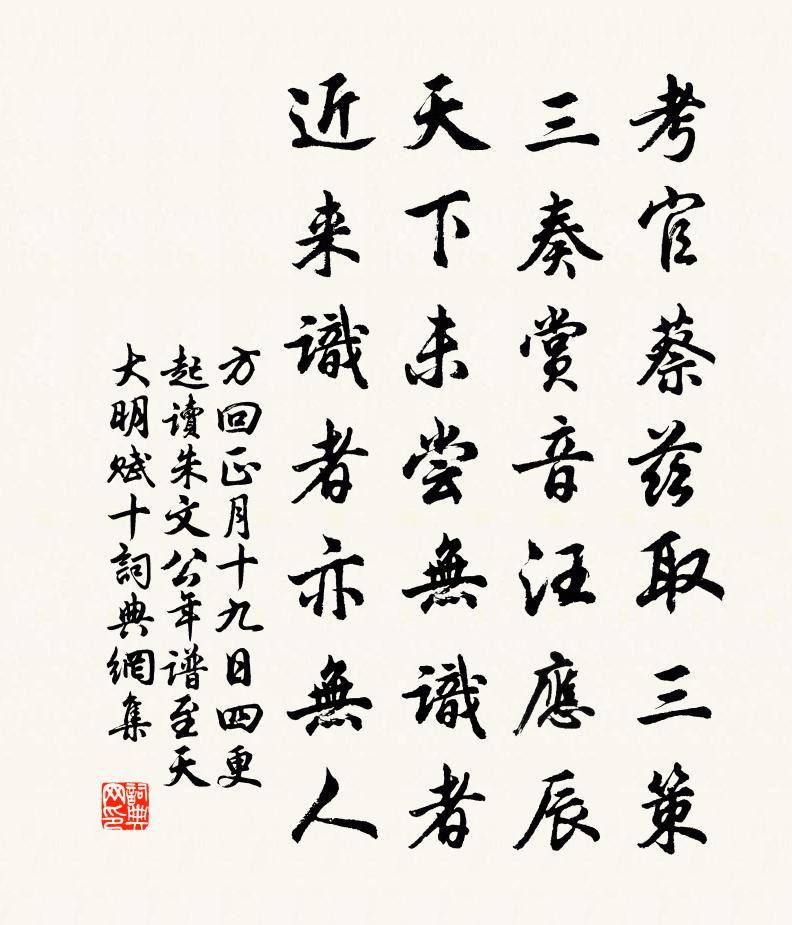 考官蔡茲取三策
三奏賞音汪應辰
天下未尝無識者
近来識者亦無人
方回正月十九日四更
起讀朱文公年谱至天
大明赋十詞典網集
詞典
网印